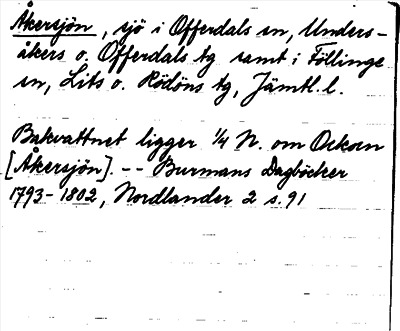 Åkersjön, sjö i Offerdals sn, Unders-
åkers o. Offerdals tg samt i Föllinge
sn, Lits o. Rödöns tg, Jämtl. l.
Bakvattnet ligger 1/4 N. om Ocksen
[Åkersjön]. -- Burmans Dagböcker
1793-1802, Nordlander 2 s. 91